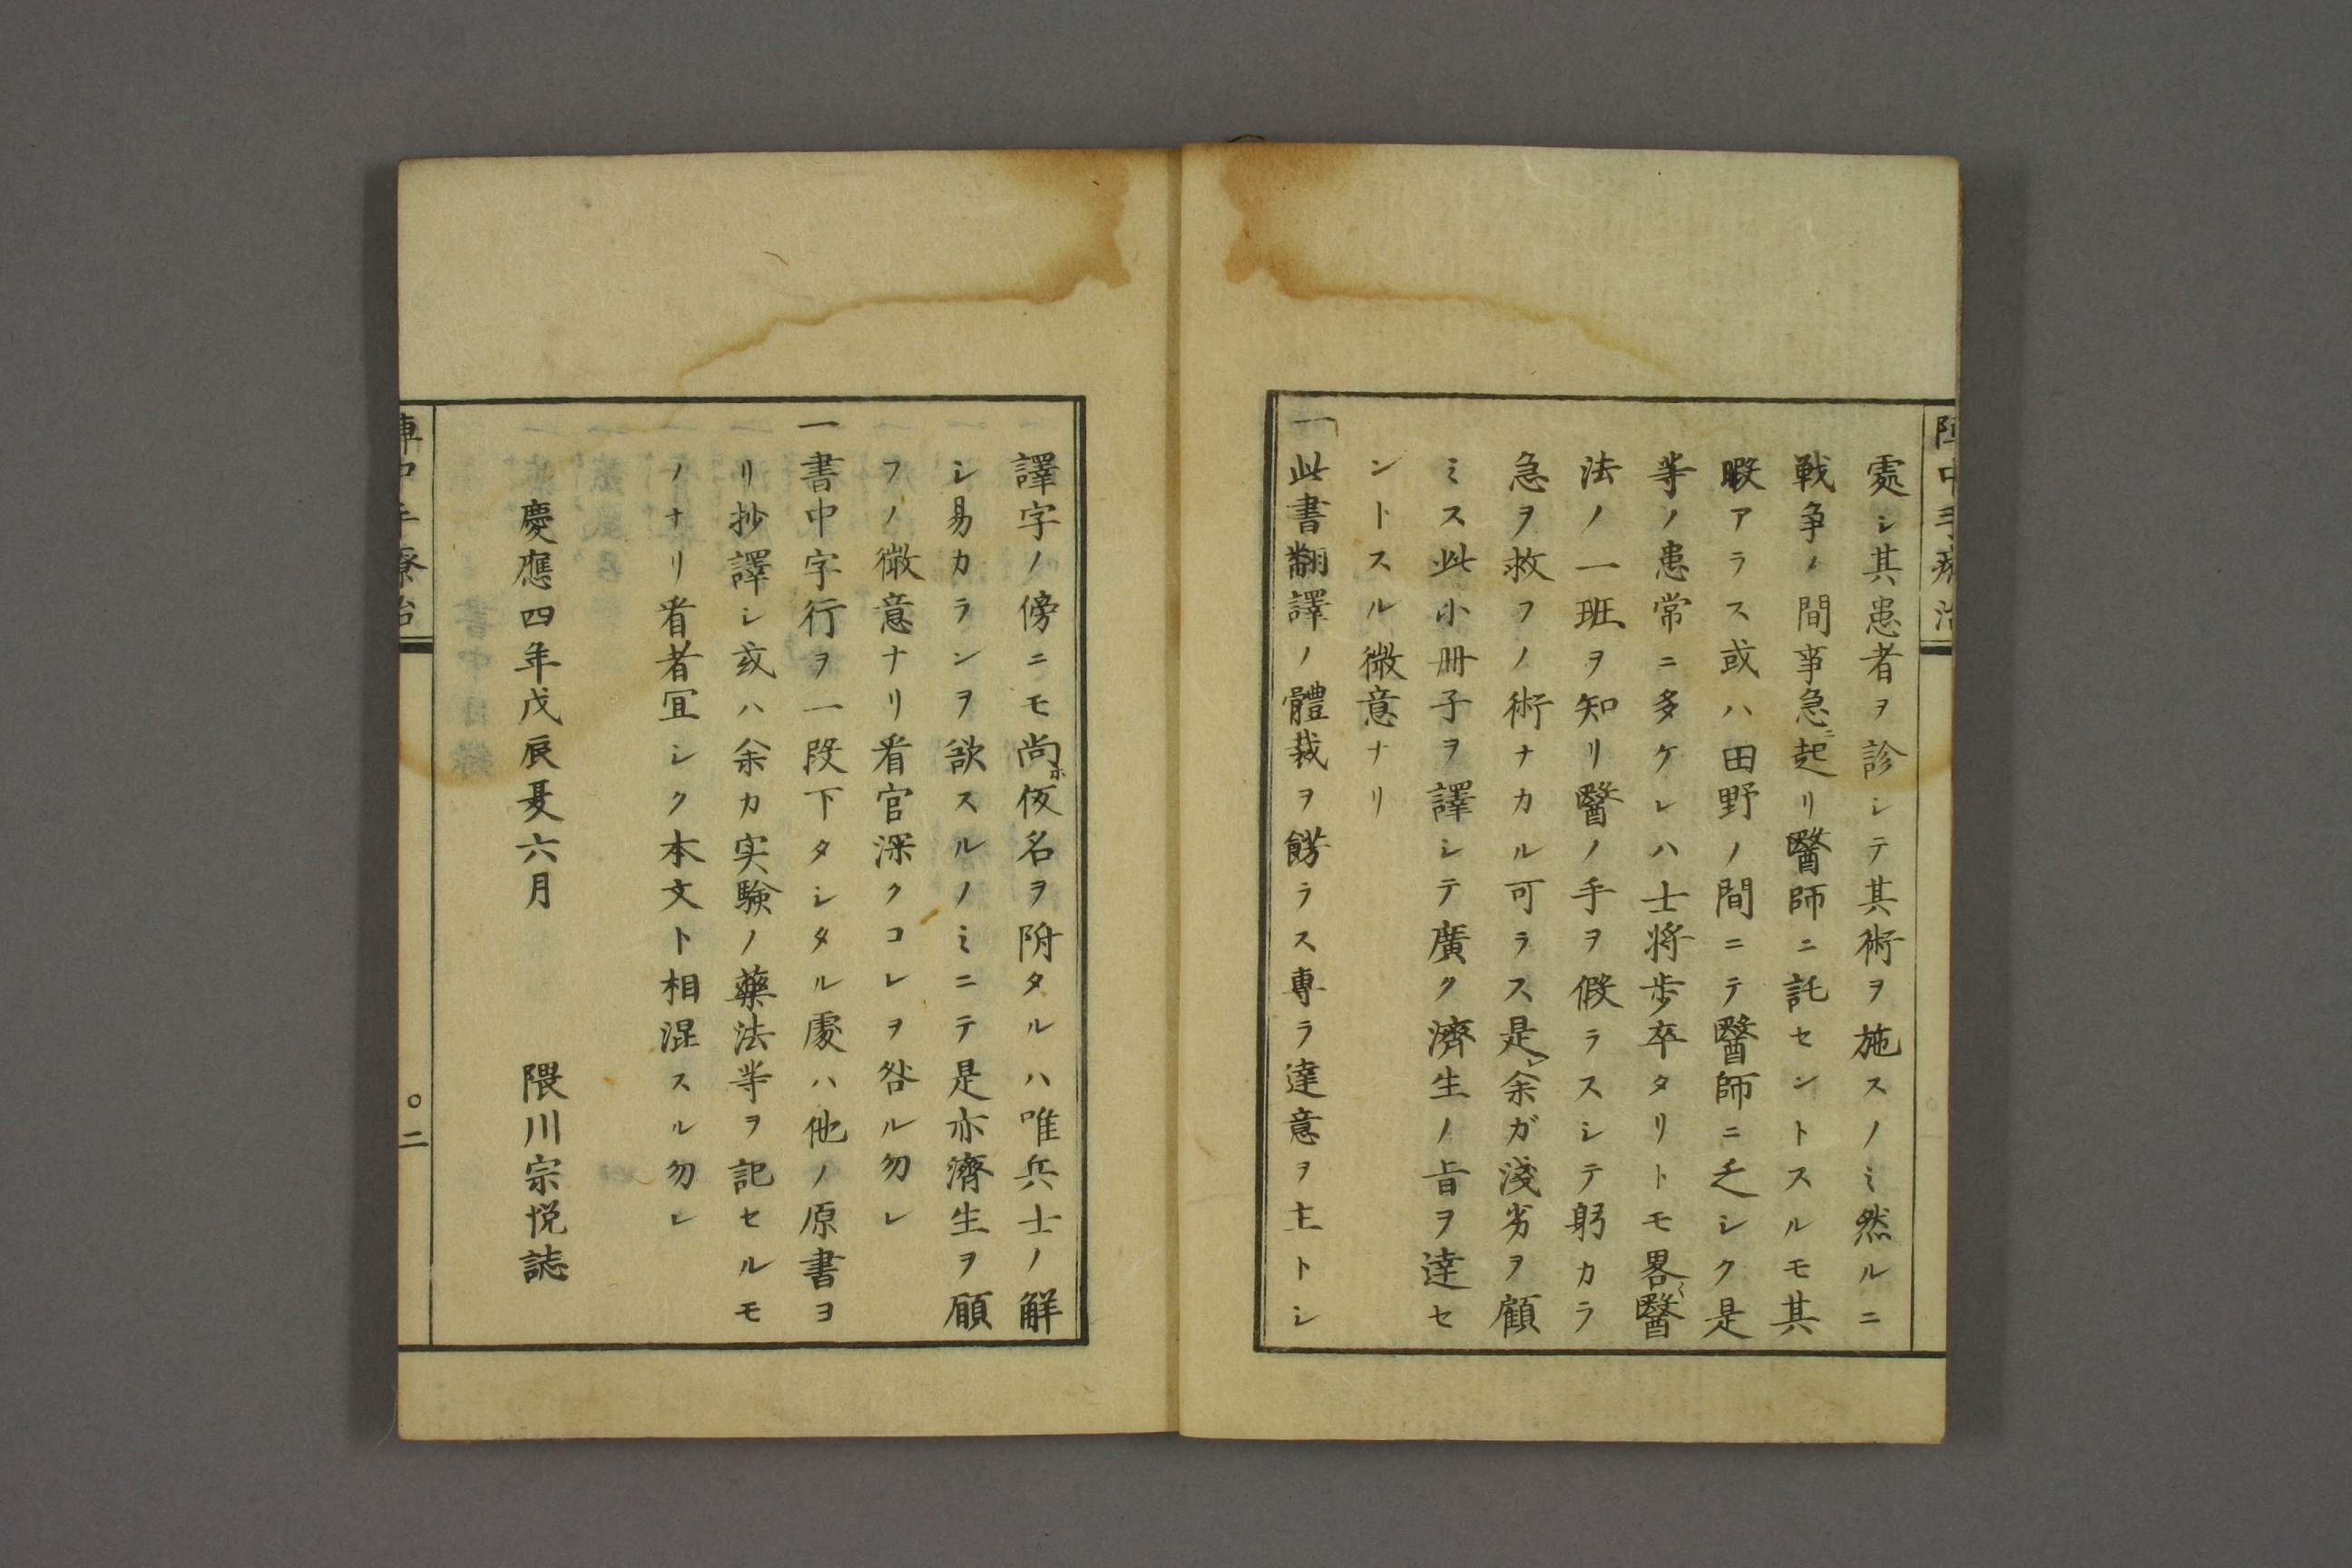 陣中手療治
處シ其患者ヲ診シテ其術ヲ施スノミ然ルニ
戦争ノ間事急ニ起リ醫師ニ託セントスルモ其
暇アラス或ハ田野ノ間ニテ醫師ニ乏シク是
等ノ患常ニ多ケレハ士将歩卒タリトモ畧〻醫
法ノ一班ヲ知リ醫ノ手ヲ假ラスシテ躬カラ
急ヲ救フノ術ナカル可ラス是レ余ガ淺劣ヲ顧
ミス此小冊子ヲ譯シテ廣ク濟生ノ旨ヲ達セ
ントスル微意ナリ
一此書翻譯ノ體裁ヲ餝ラス専ラ達意ヲ主トシ
譯字ノ傍ニモ尚ホ仮名ヲ附タルハ唯兵士ノ解
シ易カランヲ欲スルノミニテ是亦濟生ヲ願
フノ微意ナリ看官深クコレヲ咎ル勿レ
一書中字行ヲ一段下タシタル處ハ他ノ原書ヨ
リ抄譯シ或ハ余カ実験ノ藥法等ヲ記セルモ
ノナリ看者宜シク本文ト相混スル勿レ
慶應四年戊辰夏六月 隈川宗悦誌
陣中手療治 〇二